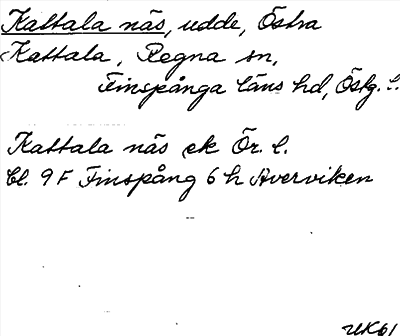 Kattala näs, udde, Östra
Kattala, Regna sn,
Finspånga läns hd, Östg. l.
Kattala näs ek Ör. l.
bl. 9F Finspång 6 h Averviken
UK61